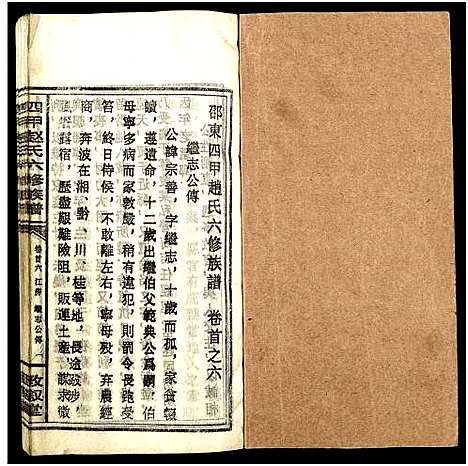 邵東四甲趙氏六修族譜 卷首之六
繼志公傳
公諱宗善，字繼志，十歲而孤，家貧輟
讀，遵遺命，十二歲出繼伯父範典公爲嗣，伯
母寧多病而家教嚴，稍有違犯，則罰令長跪受
笞，終日侍侯，不敢離左右，寧母歿，弃農經
商，奔波在湘、黔、川、桂等地，長途跋涉
露宿，歷盡艱難險阻，販運土産，謀求微
四甲赵氏六修族譜
卷首六 繼志公傳 一
敦叙堂